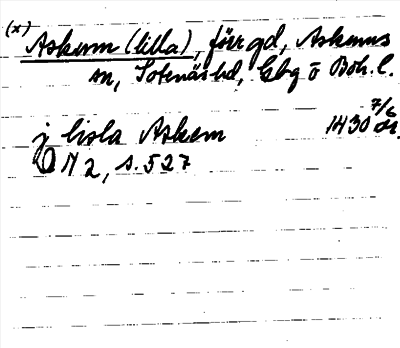 (x) Askum (lilla), förr gd, Askums
sn, Sotenäs hd, Gbg o Boh. l.
j lisla Askem 1430 7/6 or.
DN 2, s. 527